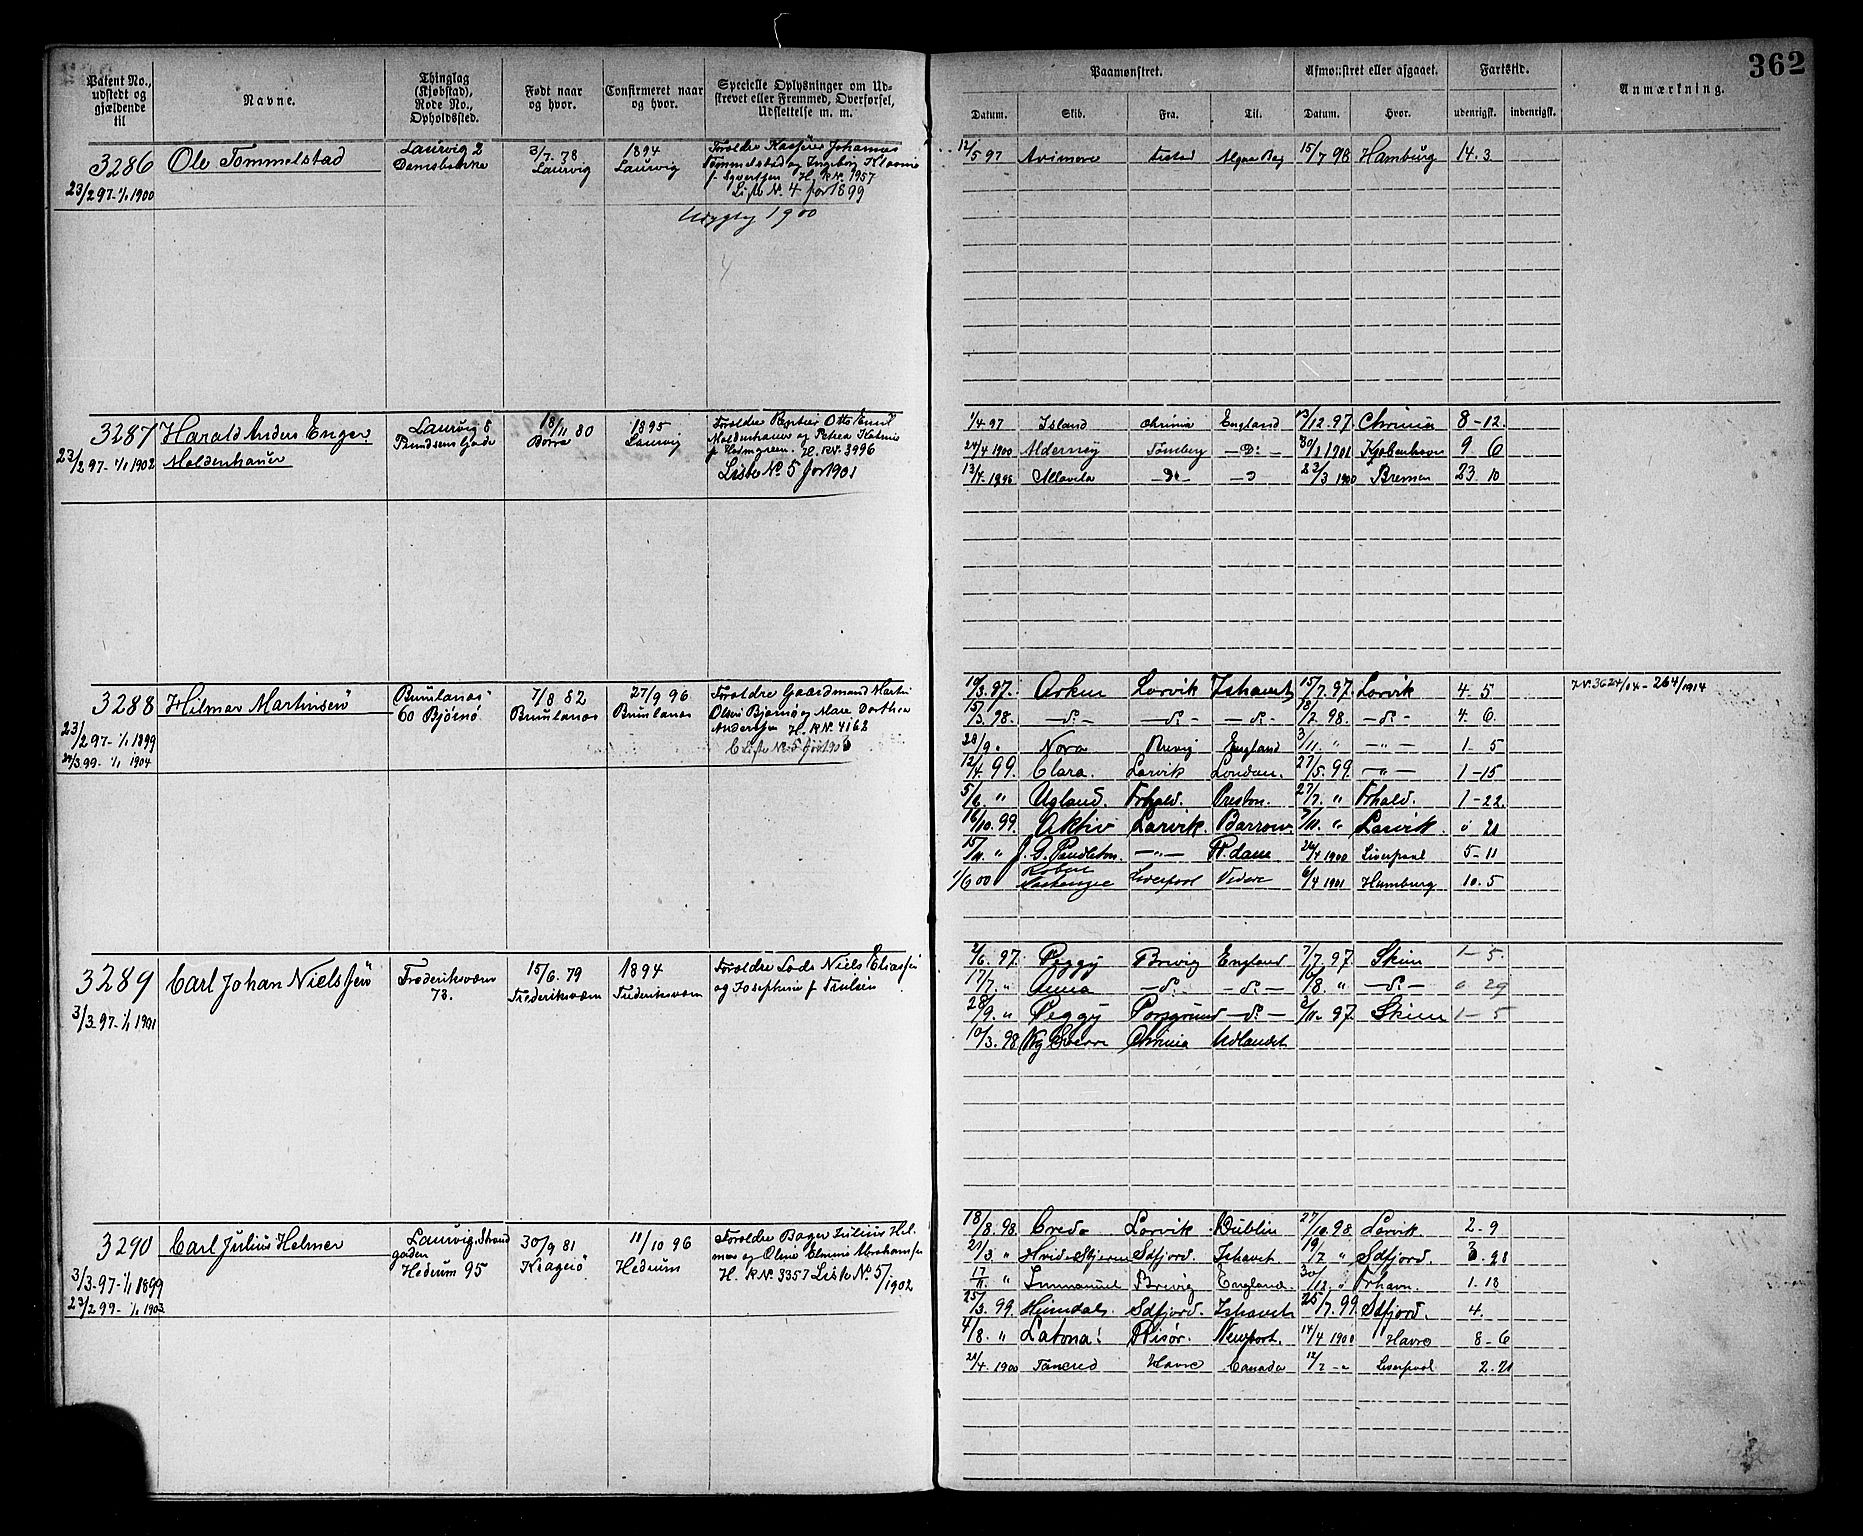 362
Patent No., udstedt og gjældende til
Navne.
Thinglag (Kjøbstad), Rode No., Opholdssted.
Født naar og hvor.
Confirmeret naar og hvor.
Specielle Oplysninger om Udskrevet eller Fremmed, Overførsel, Udslettelse m. m.
Paamønstret.
Afmønstret eller afgaaet.
Fartstid.
Anmærkning.
Datum. Skib. Fra. Til. Datum. Hvor. udenrigsk. indenrigsk.
3286 Ole Tommelstad
23/2 97-1/1 1900
Laurvig 2
3/7. 78
Laurvig
1894
Laurvig
Forældre Kasserer Johannes
Tommelstad og Ingeborg
f. Syvertsen H. RN. 1957
Liste N. 4 for 1899
1900
12/5 97 15/7 98 Hamburg 14. 3
3287 Harald Anders Enger
Moldenhauer
23/2 97-1/1 1902
Laurvig 8
18/11 80
Borre
1895
Laurvig
Forældre Otto Emil
Moldenhauer og Petrea
f. Holmgreen. H. RN. 3996
Liste No 5 for 1901
1/4 97 Island Chrinia England 13/12 97. Chrinia 8-12.
24/4 1900 Alderney Tønsberg -Do- 30/1 1901 Kjøbenhavn 9 6
-Do- 22/3 1900 Bremen 23. 10
3288 Hilmar Martinsen
23/2 97-1/1 1899
99-1/1 1904
Brunlanæs
60 Bjørnø
7/8 82
Brunlanæs
27/9 96
Brunlanæs
Forældre Gaardmand Martin
Olsen Bjørnø og Maren Dorthea
Andersen H. RN. 4162
Liste N. 5 for 1903
19/3 97. Orken Larvik Ishavet 15/7 97 Larvik 4-5
15/3. 98. -do- -do- -do- 18/7. 98. -do- 4. 6.
20/9 " Nora Brevig England 3/11. " -"- 1-5
12/4. 99. Clara. Larvik London. 27/5. 99. -"- 1-15
5/6. " Ugland. Frhald. Preston. 27/7. " Frhald. 1-22.
16/10. 99. Aktiv Larvik. Barrow Larvik. 0 21
15/11. " J. G. Pendleton. -"- R.dam 26/4 1900 Liverpool 5-11
1/6 00 Liverpool 6/4 1901 Hamburg 10. 5
N. 3624/04-264/1914
3289 Carl Johan Nielssen
3/3-97-1/1 1901
Frederiksværn
73.
15/6. 79
Frederiksværn
1894
Frederiksværn
Forældre Lods Niels Eliassen
og Josephine f. Trulsen
2/6. 97. Peggy Brevig England 7/7. 97 Skien 1-5.
17/7. " Anna -do- -do- /8 " -do- 0 29
28/9. " Peggy Porsgrund -do- 2/11. 97. Skien 1-5
10/3. 98 Kg Sverre Chrinia Udlandet
3290 Carl Julius Helmer
3/3-97-1/1 1899
23/2 99-1/1 1903
Laurvig, Strand
gaden
Hedrum 95
30/9 81
Kragerø
11/10 96
Hedrum
Forældre Bager Julius Hel-
mer og Oline Elmine Abrahamsen
H. RN. 3357 Liste No 5/1902
18/8. 98. Credo Larvik Dublin 27/10. 98. Larvik. 2-9
21/3. " Hvide Bjørn Sdfjord. Ishavet 19/7 " Sdfjord. 3. 28
17/11 " Immanuel Brevig England. 30/12. Frhavn. 1. 13
15/3. 99. Heimdal. Sdfjord. Ishavet 25/7. 99. Sdfjord. 4.
4/8. " Latona. Risør. Newport. 14/4 1900 Havre 8-6
21/4. 1900 Tancred Havre Canada 12/7 -" Liverpool 2. 21